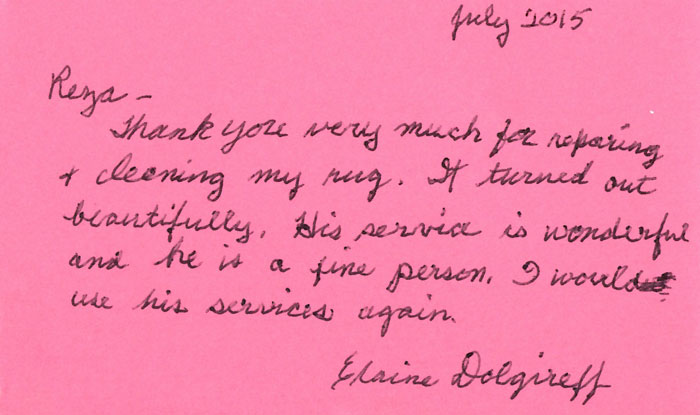 July 2015
Reza -
Thank you very much for reparing
+ cleaning my rug. It turned out
beautifully. His service is wonderful
and he is a fine person. I would
use his services again.
Elaine Dolgireff